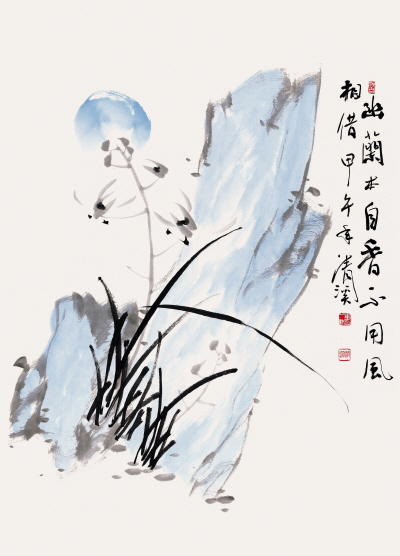 幽蘭本自香不用風
相借甲午年清溪